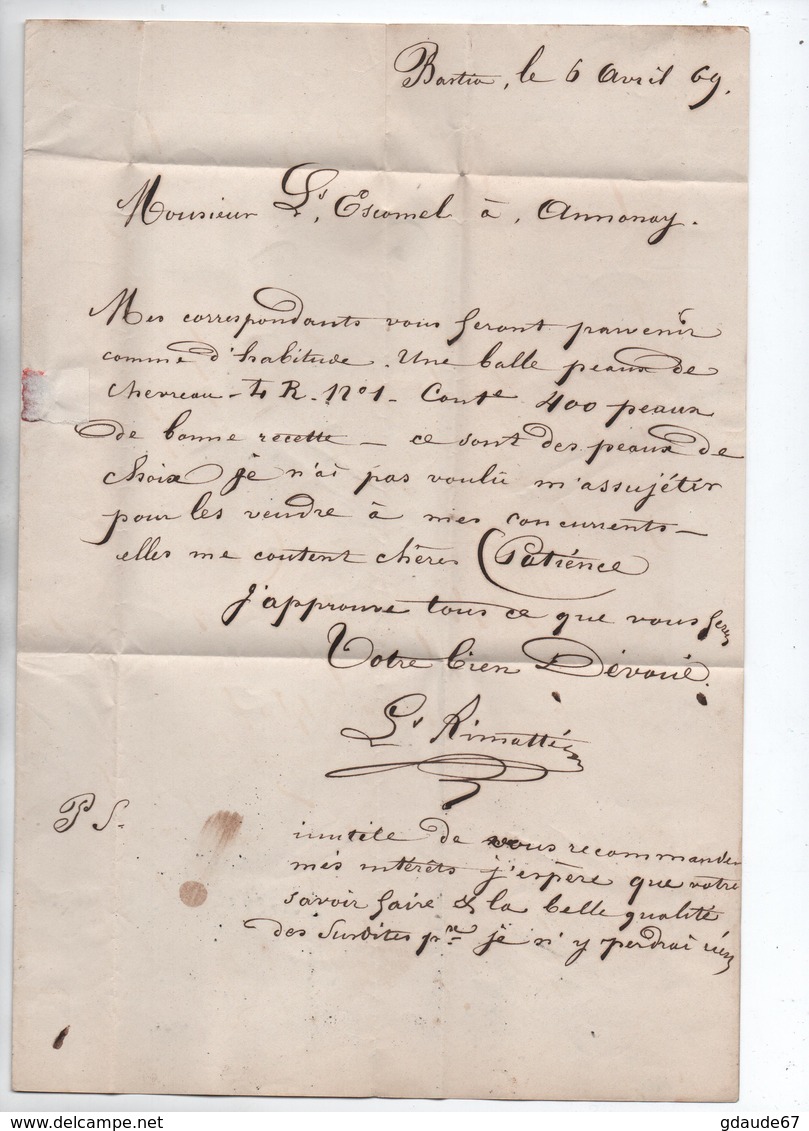 Bastia, le 6 Avril 69.
Monsieur Ls, Escomel à, Annonay.
Mes correspondants vous feront parvenir
comme d'habitude. Une balle peaux de
chevreau - R. N°1 - Conte 400 peaux
de bonne recette - ce sont des peaux de
choix je n'ai pas voulu m'assujétir
pour les vendre à mes concurrents -
elles me coutent chères (Patience
J'approuve tous ce que vous ferez
Votre bien Dévoué.
Ls Rimattéi
PS.
inutile de vous recommander
mes intérêts j'espère que votre
savoir faire & la belle qualité
des susdites px je n'y perdrai rien
delcampe.net
gdaude67